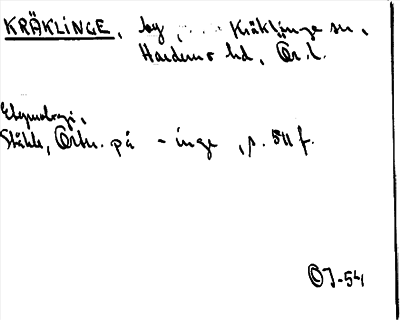 KRÄKLINGE, by, .... Kräklinge sn,
Hardemo hd, Ör. l.
Etymologi,
Ståhle, Ortn. på -inge, s. 511 f.
OJ-54